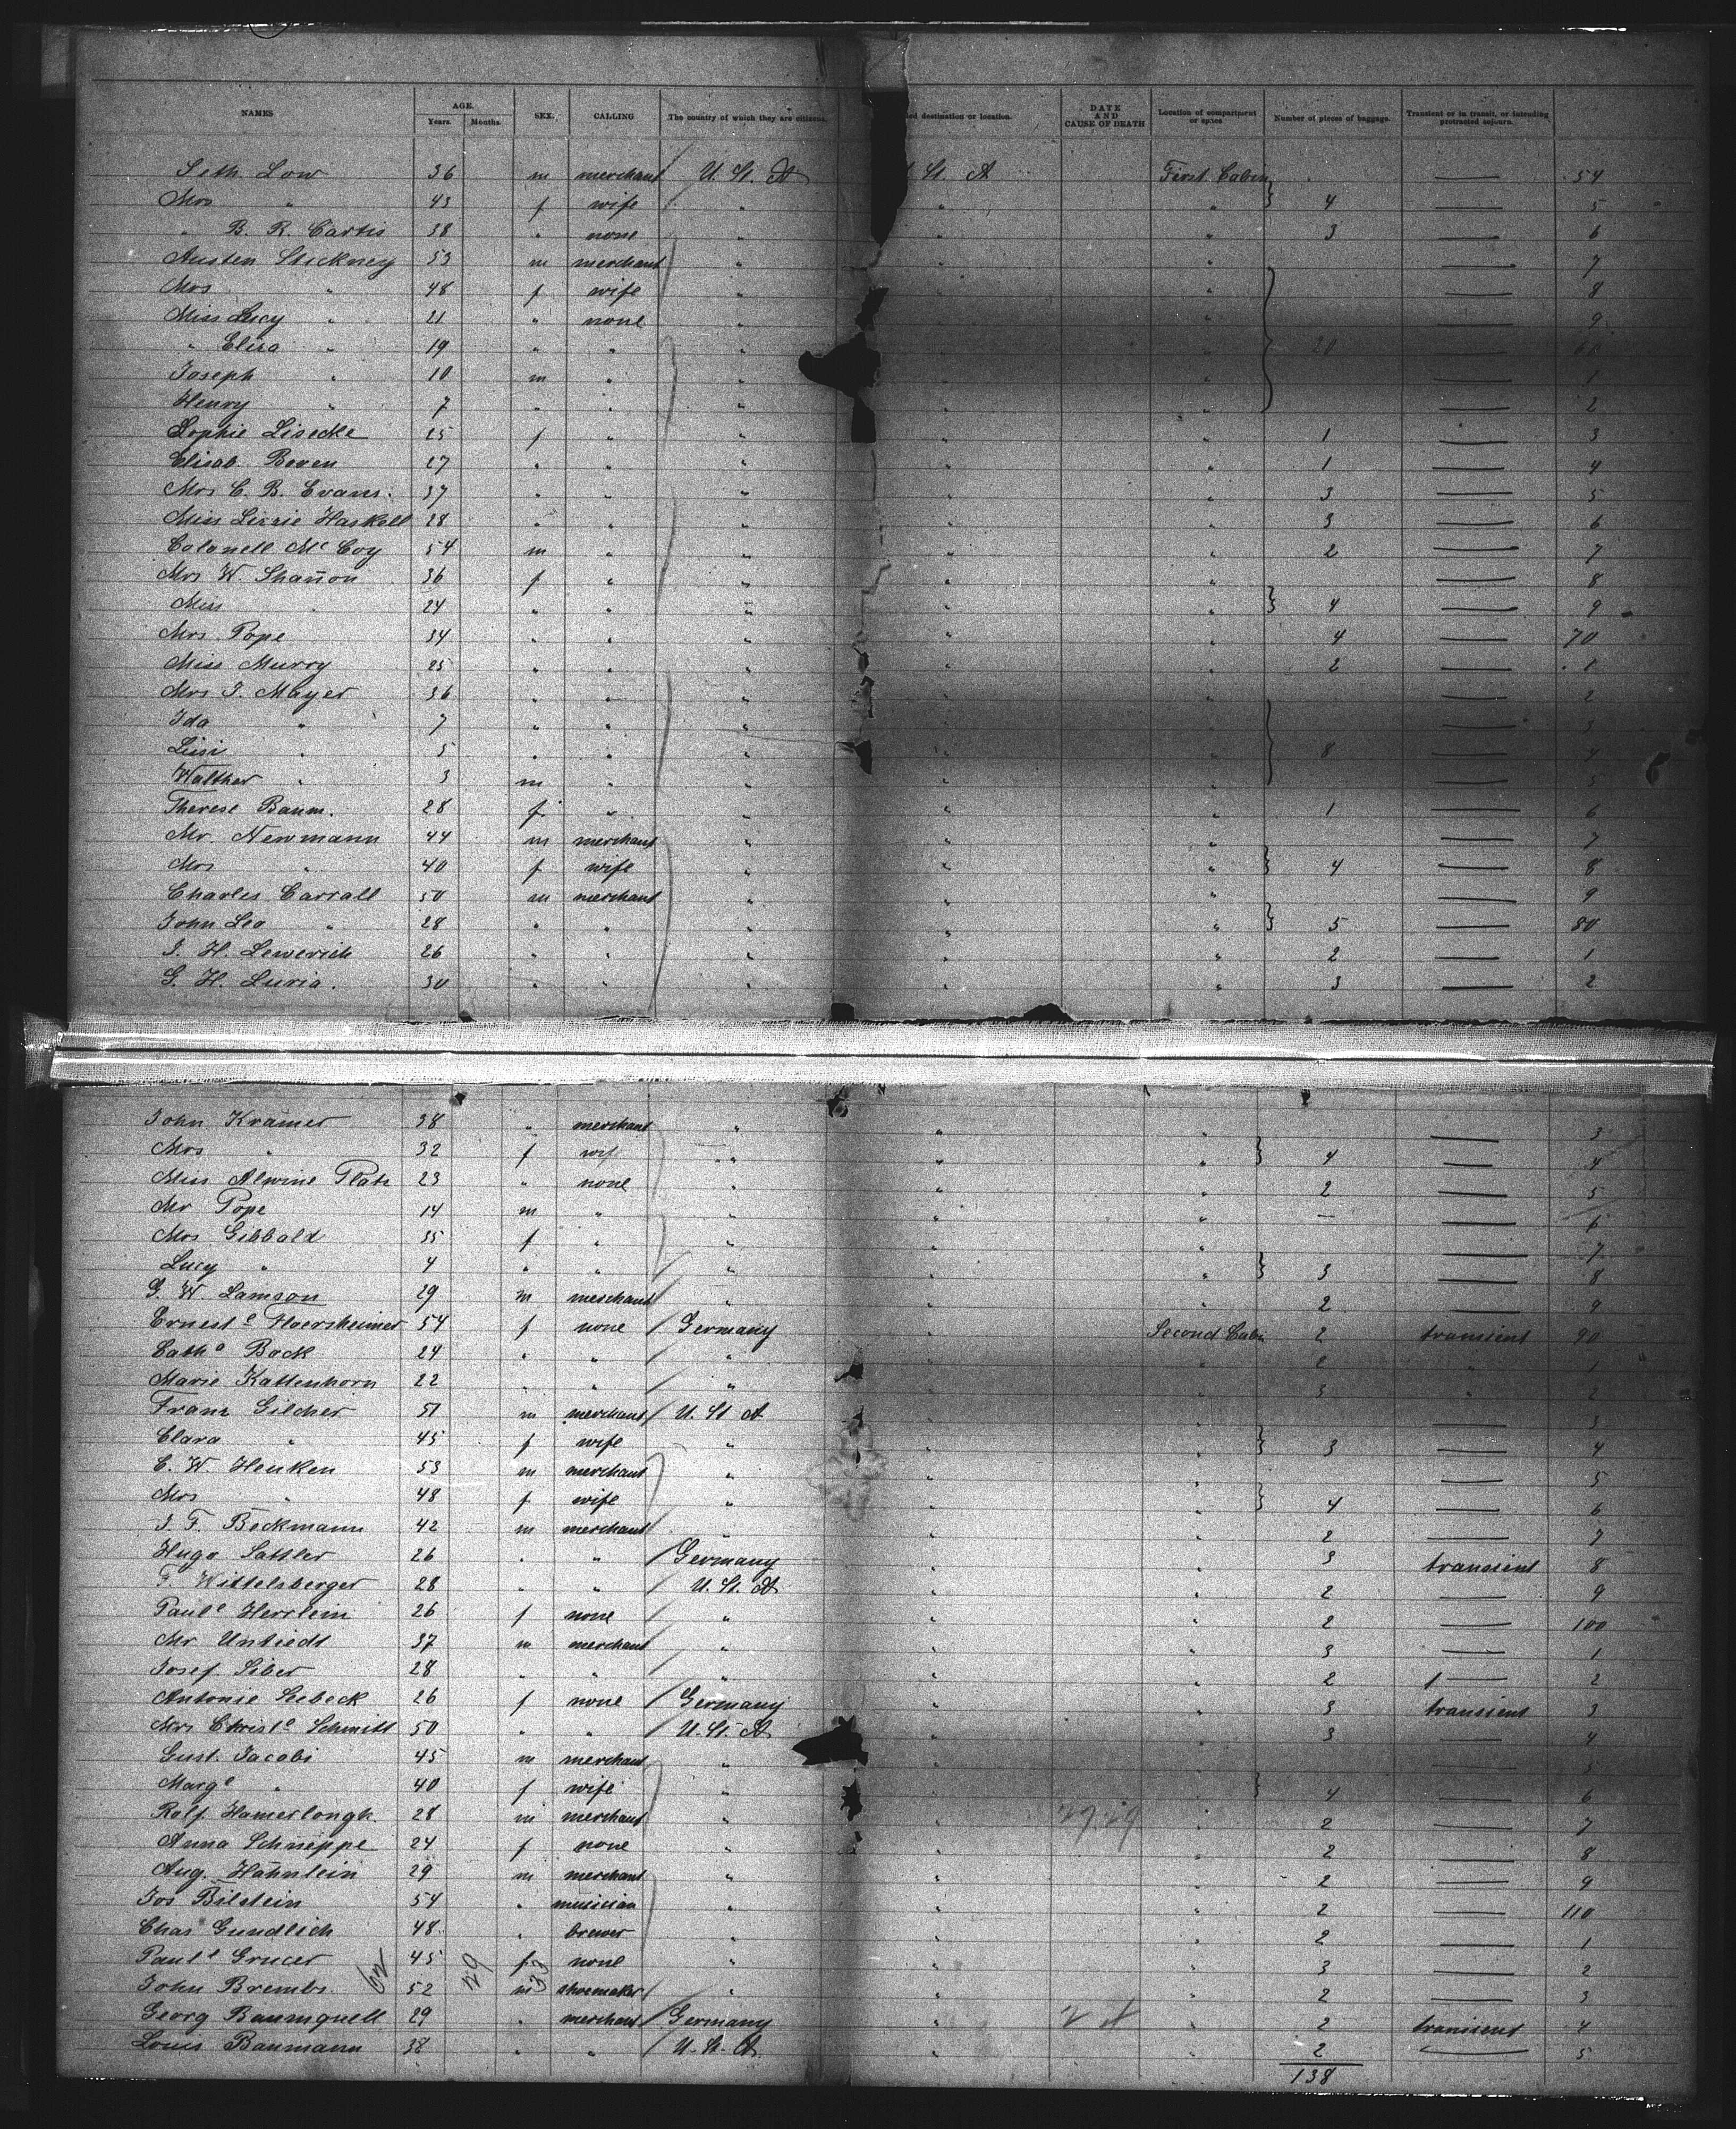 NAMES AGE. Years. Months. SEX. CALLING The country of which they are citizens. ed destination or location. DATE AND CAUSE OF DEATH Location of compartment or space Number of pieces of baggage. Transient or in transit, or intending protracted sojourn.
Seth Low 36 m merchant U. St. A St. A First Cabin — 54
Mrs " 43 f wife " " " } 4 — 5
" B. R. Curtis 38 " none " " " 3 — 6
Austen Stickney 53 m merchant " " " — 7
Mrs " 48 f wife " " — 8
Miss Lucy " 21 " none " " — 9
" Eliza " 19 " " " " 20 — 60
Joseph " 10 m " " " — 1
Henry " 7 " " " " " — 2
Sophie Lisecke 25 f " " " " 1 — 3
Elisab. Beven 27 " " " " " 1 — 4
Mrs C. B. Evans. 37 " " " " " 3 — 5
Miss Lizzie Haskell 28 " " " " " 3 — 6
Colonell Mc Coy 54 m " " " " 2 — 7
Mrs W. Shanon 36 f " " " " — 8
Miss " 24 " " " " " } 4 — 9
Mrs. Pope 34 " " " " " 4 — 70
Miss Murry 25 " " " " " 2 — 1
Mrs J. Mayer 36 " " " " " — 2
Ida " 7 " " " " " — 3
Lissi " 5 " " " " " 8 — 4
Walther " 3 m " " " " — 5
Therese Baum. 28 f " " " " 1 — 6
Mr. Newmann 44 m merchant " " " — 7
Mrs " 40 f wife " " " } 4 — 8
Charles Carrall 50 m merchant " " " — 9
John Leo " 28 " " " " " } 5 — 80
J. H. Lewerich 26 " " " " " 2 — 1
G. H. Luria. 30 " " " " " 3 — 2
John Krämer 38 " merchant " " " — 3
Mrs " 32 f wif " " " } 4 — 4
Miss Alwine Platz 23 " none " " " 2 — 5
Mr Pope 14 m " " " " — — 6
Mrs Gibbald 35 f " " " " — 7
Lucy " 4 " " " " " } 3 — 8
G. W. Lamson 29 m merchant " " " 2 — 9
Ernest e Floersheimer 54 f none Germany " Second Cabin 2 transient 90
Cath a Bock 24 " " " " " 2 " 1
Marie Kattenhorn 22 " " " " " 3 " 2
Franz Gilcher 51 m merchant U. St A " " — 3
Clara " 45 f wife " " " } 3 — 4
C. W. Heuken 53 m merchant " " " — 5
Mrs " 48 f wife " " " } 4 — 6
J. F. Beckmann 42 m merchant " " " 2 — 7
Hugo Sattler 26 " " Germany " " 3 transient 8
F. Wittelsberger 28 " " U. St. A " " 2 — 9
Paul e Herrlein 26 f none " " " 2 — 100
Mr Untiedt 37 m merchant " " " 3 — 1
Josef Siber 28 " " " " " 2 — 2
Antonie Seebeck 26 f none Germany " " 3 transient 3
Mrs Christ e Schmitt 50 " " U. St. A " " 3 — 4
Gust. Jacobi 45 m merchant " " " — 5
Marg e " 40 f wife " " " } 4 — 6
Ralf. Hamerlongh. 28 m merchant " " " 2 — 7
Anna Schneppe 24 f none " " " 2 — 8
Aug. Hähnlein 29 m merchant " " " 2 — 9
Jos Bilstein 54 " musician " " " 2 — 110
Chas Gundlich 48 " brewer " " " 2 — 1
Paul e Grucer 45 f none " " " 3 — 2
John Brembs. 62 52 29 m 33 shoemaker " " " 2 — 3
Georg Baumquell 29 " merchant Germany " " 2 transient 4
Louis Baumann 38 " " U. St. A. " 2 — 5
138